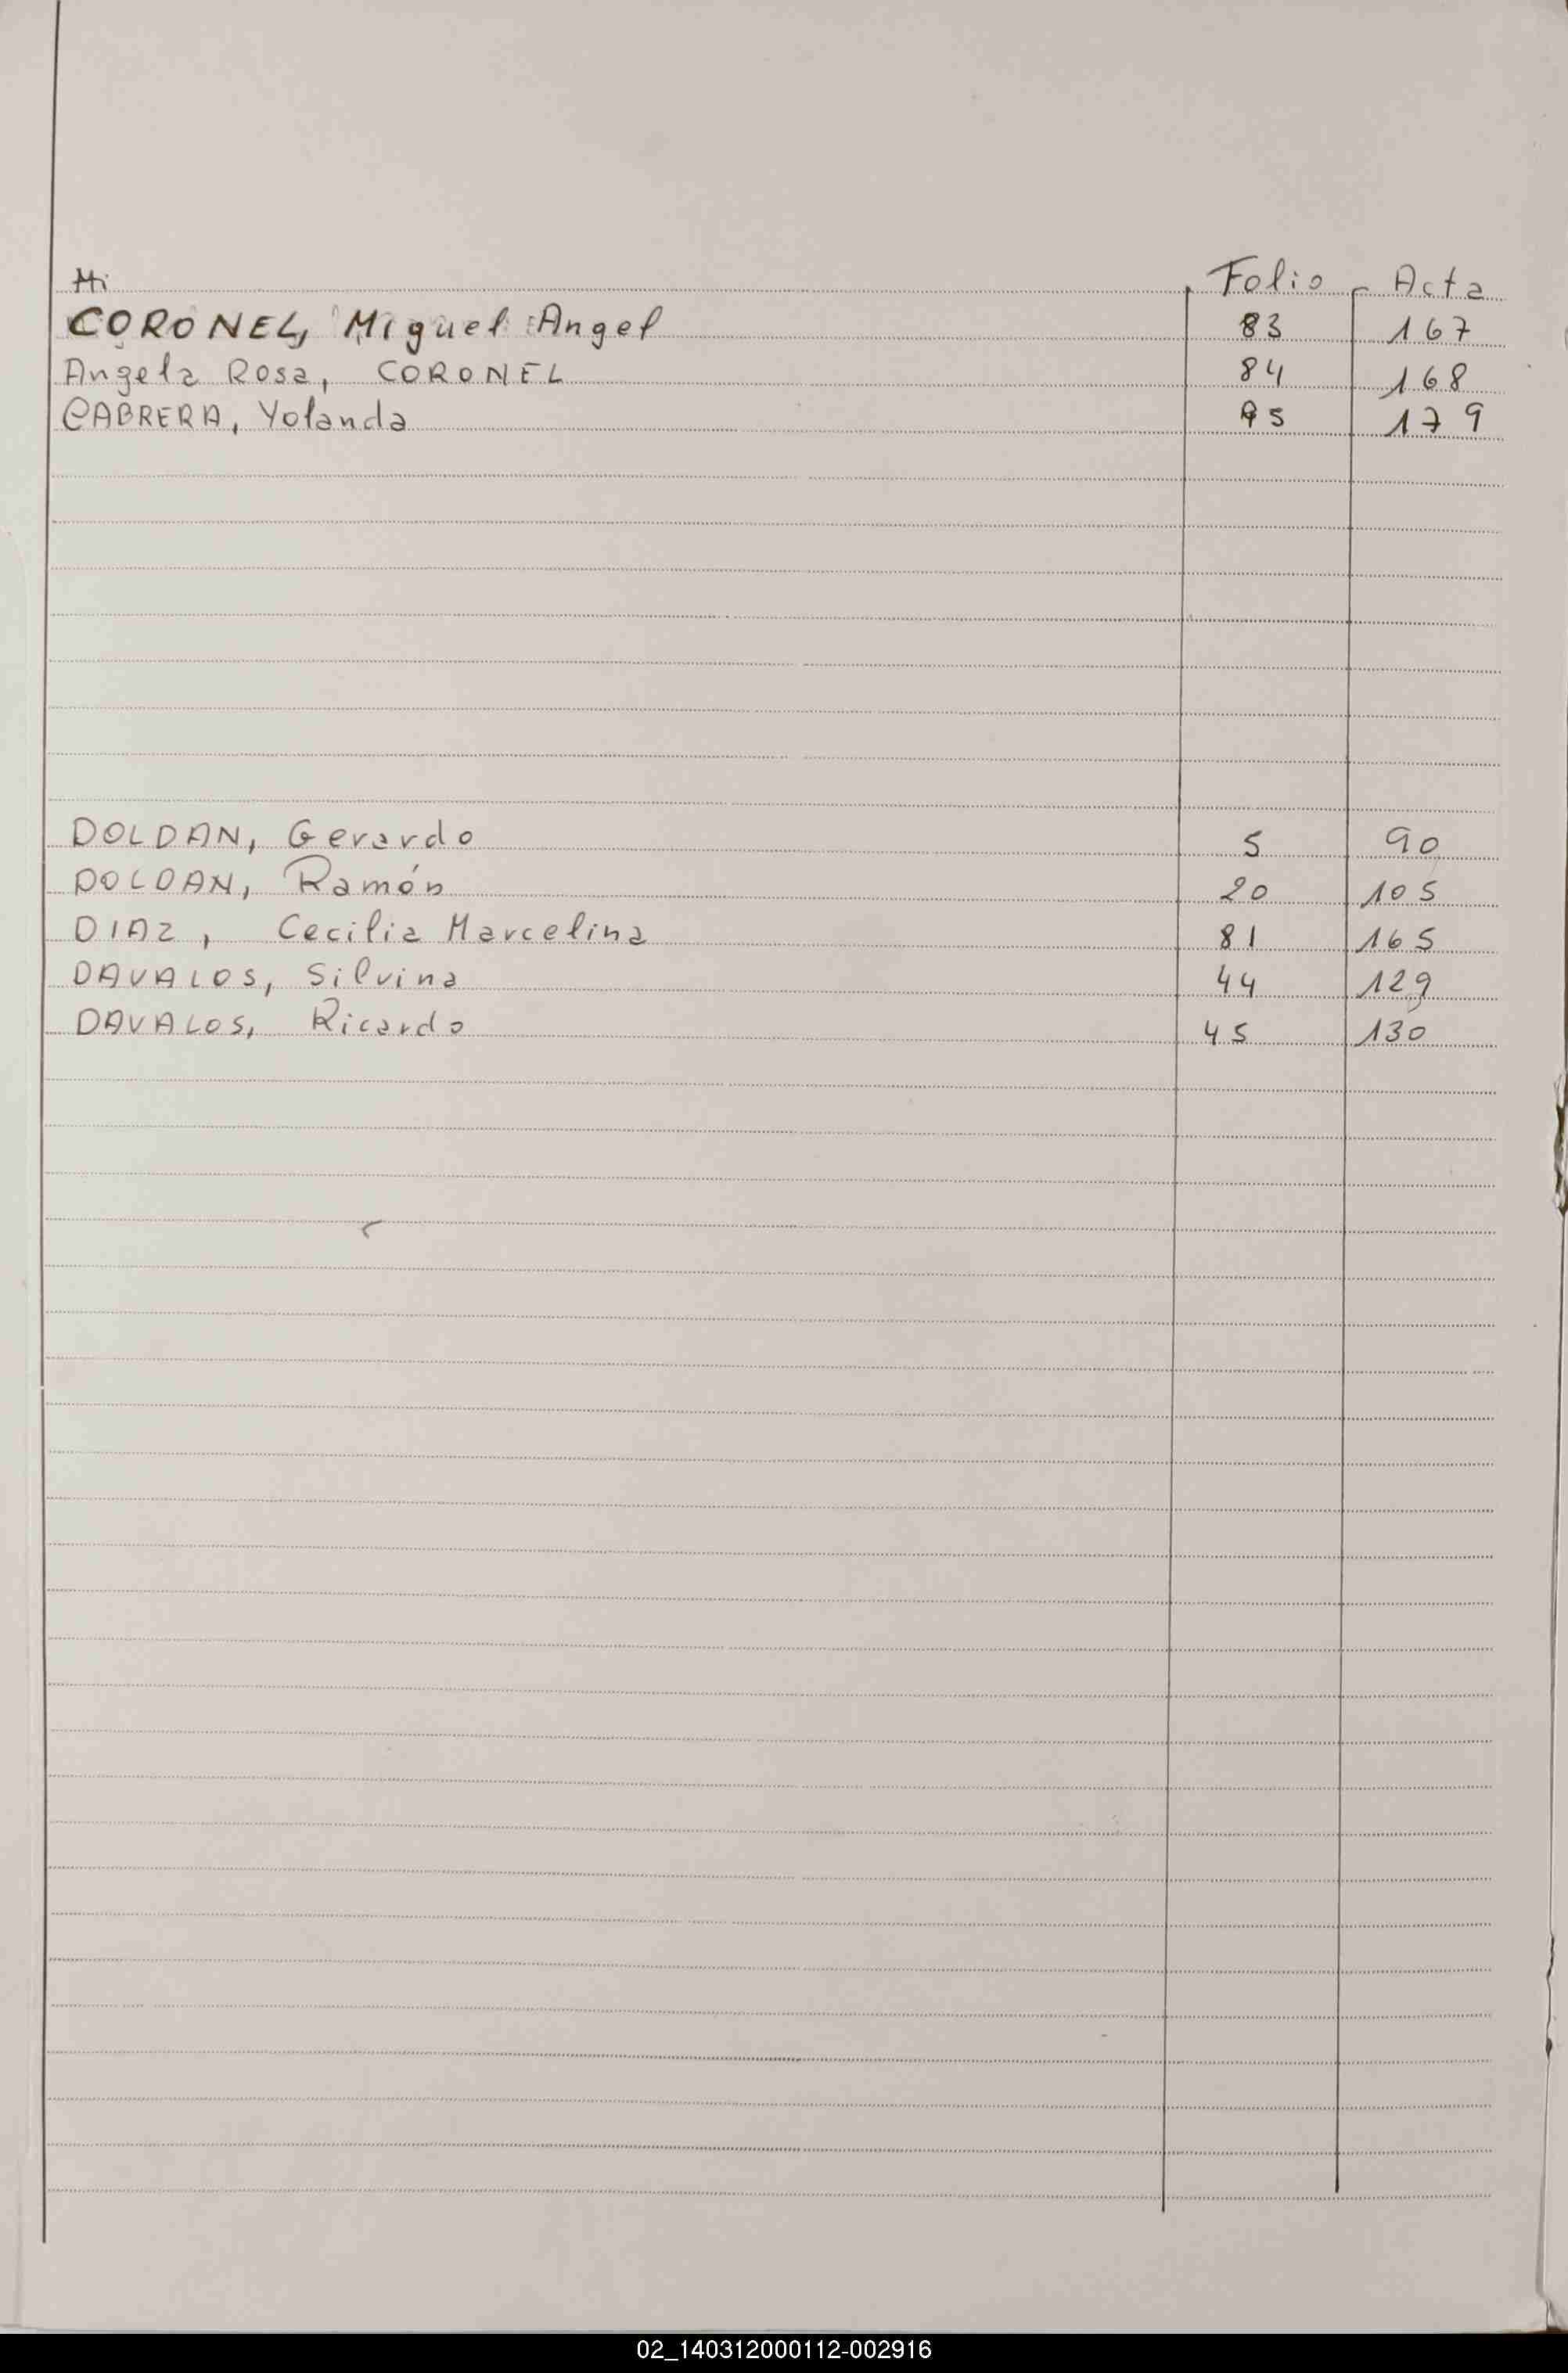 Mi Folio Acta
CORONEL, Miguel Angel 83 167
Angela Rosa, CORONEL 84 168
CABRERA, Yolanda 95 179
DOLDAN, Gerardo 5 90
DOLDAN, Ramón 20 105
DIAZ, Cecilia Marcelina 81 165
DAVALOS, Silvina 44 129
DAVALOS, Ricardo 45 130
02_140312000112-002916